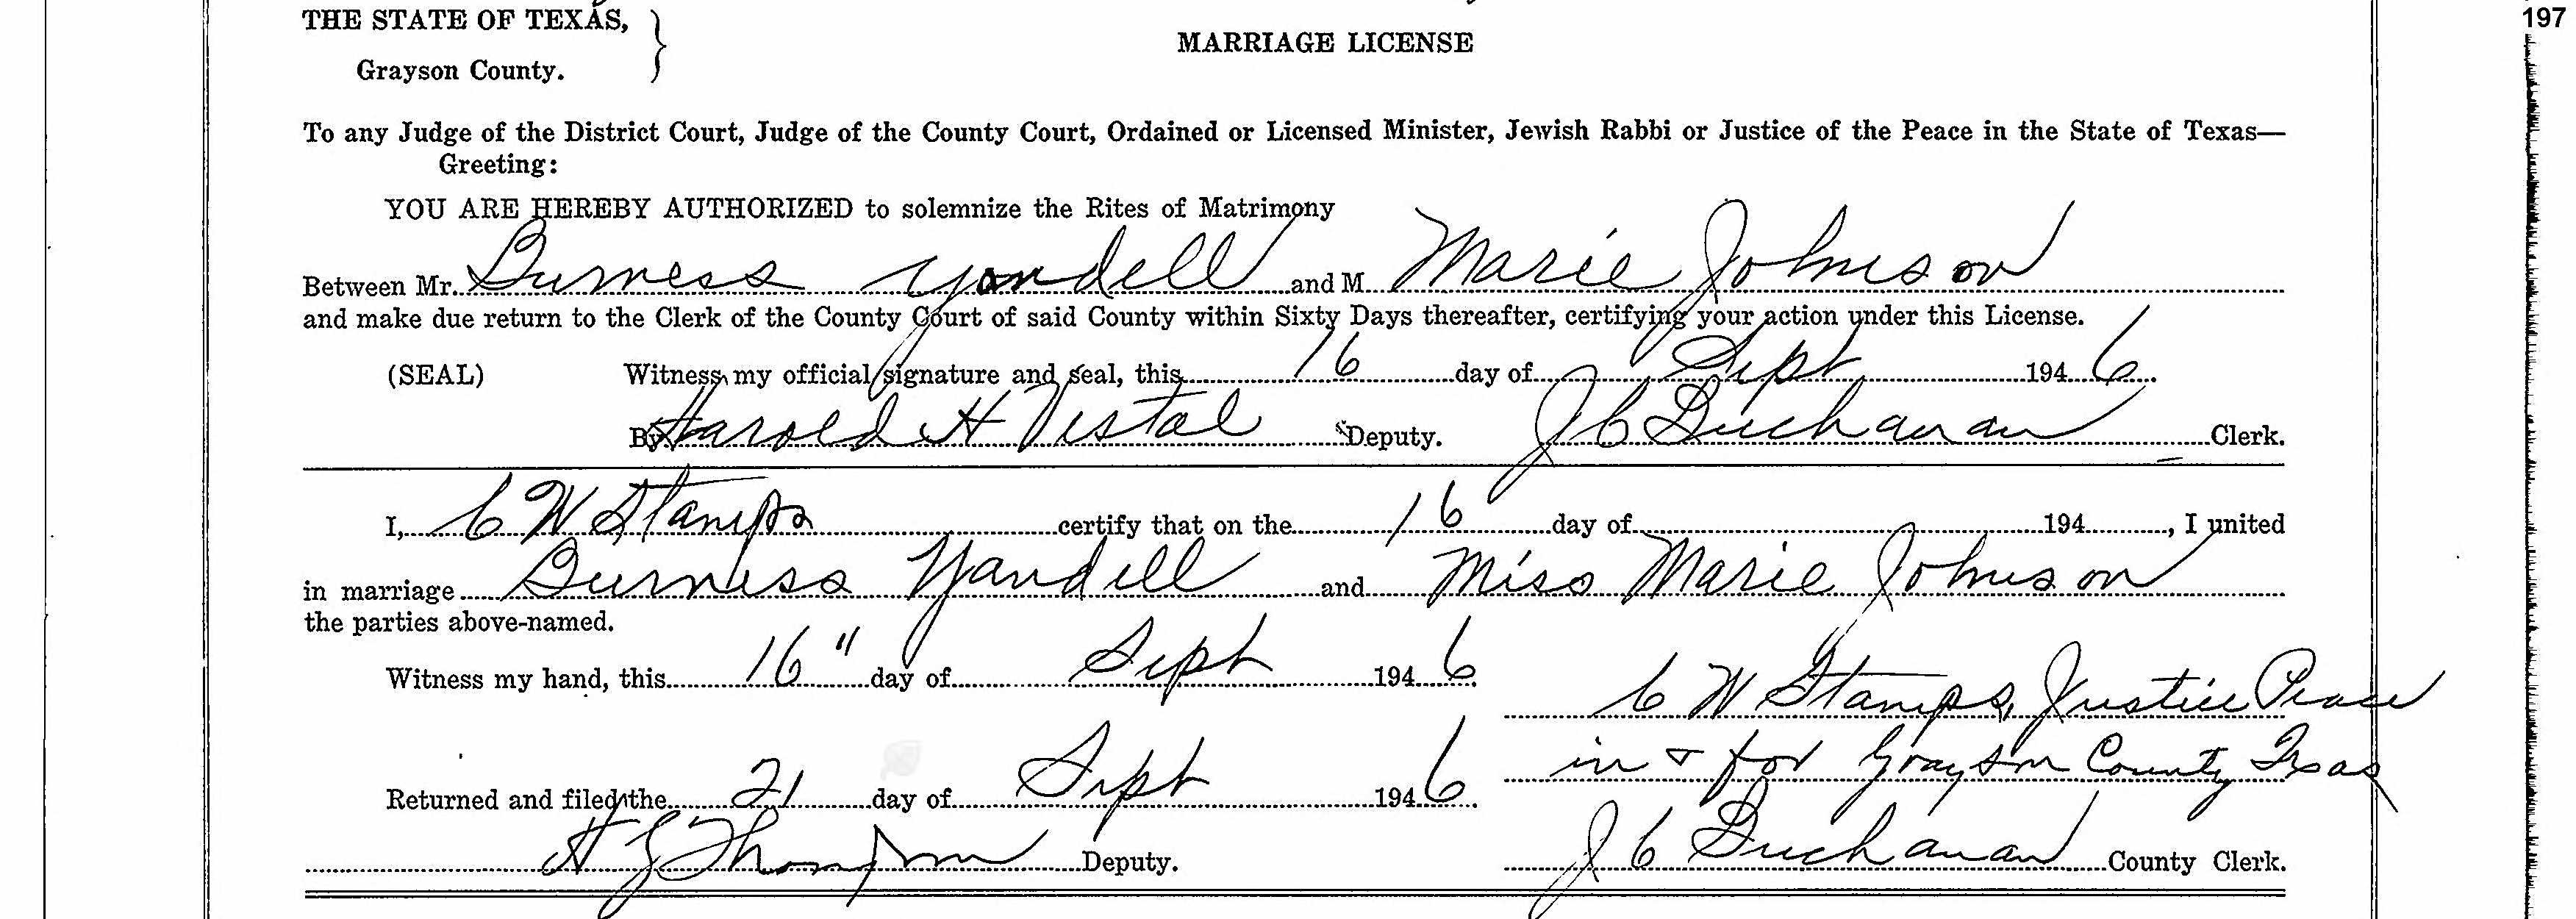 197
THE STATE OF TEXAS,
Grayson County.
MARRIAGE LICENSE
To any Judge of the District Court, Judge of the County Court, Ordained or Licensed Minister, Jewish Rabbi or Justice of the Peace in the State of Texas—
Greeting:
YOU ARE HEREBY AUTHORIZED to solemnize the Rites of Matrimony
Between Mr. Burness Yandell and M Marie Johnson
and make due return to the Clerk of the County Court of said County within Sixty Days thereafter, certifying your action under this License.
(SEAL) Witness my official signature and seal, this 16 day of Sept 1946.
By Harold H Vestal Deputy. J C Buchanan Clerk.
I, C W Stamps certify that on the 16 day of 194 , I united
in marriage Burness Yandell and Miss Marie Johnson
the parties above-named.
Witness my hand, this 16" day of Sept 1946.
C W Stamps, Justice Peace
in & for Grayson County Texas
Returned and filed the 21 day of Sept 1946.
Thompson Deputy. J C Buchanan County Clerk.